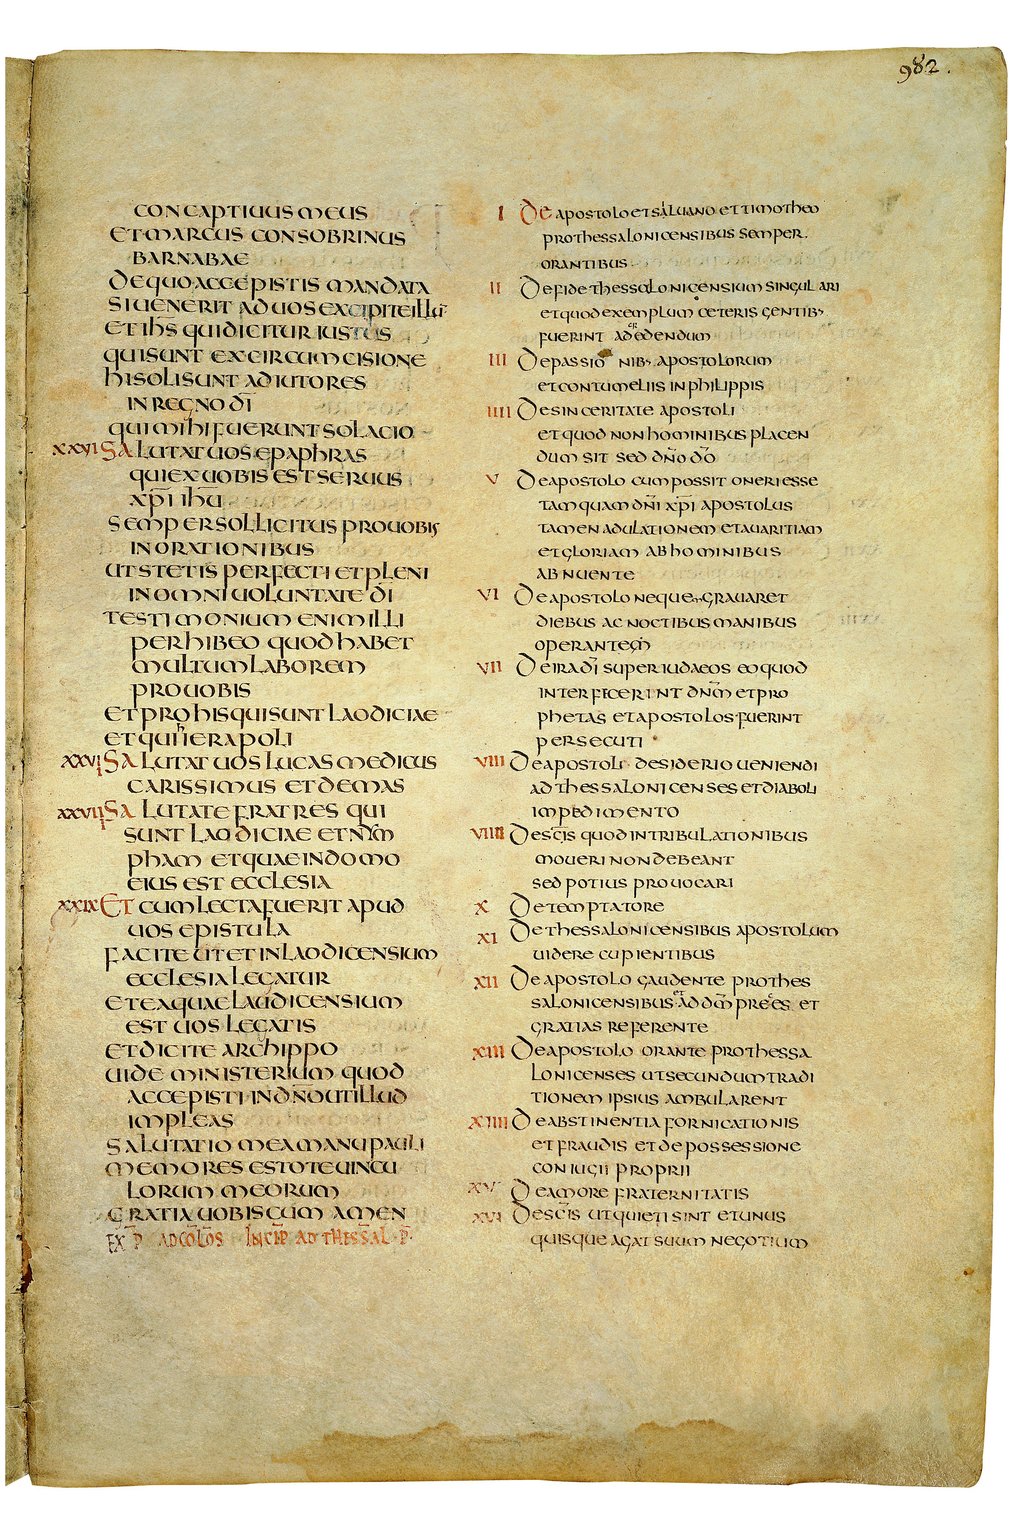 982.
CONCAPTIUUS MEUS
ET MARCUS CONSOBRINUS
BARNABAE
DE QUO ACCEPISTIS MANDATA
SI UENERIT AD UOS EXCIPITE ILLŪ
ET IHS̄ QUI DICITUR IUSTUS
QUI SUNT EX CIRCUMCISIONE
HI SOLI SUNT ADIUTORES
IN REGNO DĪ
QUI MIHI FUERUNT SOLACIO
XXVI SALUTAT UOS EPAPHRAS
QUI EX UOBIS EST SERUUS
XP̄I IHŪ
SEMPER SOLLICITUS PRO UOBIS
IN ORATIONIBUS
UT STETIS PERFECTI ET PLENI
IN OMNI UOLUNTATE DĪ
TESTIMONIUM ENIM ILLI
PERHIBEO QUOD HABET
MULTUM LABOREM
PRO UOBIS
ET PRO HIS QUI SUNT LAODICIAE
ET QUI HIERAPOLI
XXVII SALUTAT UOS LUCAS MEDICUS
CARISSIMUS ET DEMAS
XXVIII SALUTATE FRATRES QUI
SUNT LAODICIAE ET NYM
PHAM ET QUAE IN DOMO
EIUS EST ECCLESIA
XXIX ET CUM LECTA FUERIT APUD
UOS EPISTULA
FACITE UT ET IN LAODICENSIUM
ECCLESIA LEGATUR
ET EA QUAE LAUDICENSIUM
EST UOS LEGATIS
ET DICITE ARCHIPPO
UIDE MINISTERIUM QUOD
ACCEPISTI IN DN̄O UT ILLUD
IMPLEAS
SALUTATIO MEA MANU PAULI
MEMORES ESTOTE UINCU
LORUM MEORUM
GRATIA UOBISCUM AMEN
EXP̄ AD COLOS INCIP̄ AD THESSAL P̄
I DE APOSTOLO ET SALUANO ET TIMOTHEO
PRO THESSALONICENSIBUS SEMPER
ORANTIBUS
II DE FIDE THESSALONICENSIUM SINGULARI
ET QUOD EXEMPLUM CETERIS GENTIB·
FUERINT AD CREDENDUM
III DE PASSIONIB· APOSTOLORUM
ET CONTUMELIIS IN PHILIPPIS
IIII DE SINCERITATE APOSTOLI
ET QUOD NON HOMINIBUS PLACEN
DUM SIT SED DN̄O DŌ
V DE APOSTOLO CUM POSSIT ONERI ESSE
TAMQUAM DN̄I XP̄I APOSTOLUS
TAMEN ADULATIONEM ET AUARITIAM
ET GLORIAM AB HOMINIBUS
ABNUENTE
VI DE APOSTOLO NE QUEM GRAUARET
DIEBUS AC NOCTIBUS MANIBUS
OPERANTEM
VII DE IRA DĪ SUPER IUDAEOS EO QUOD
INTERFICERINT DN̄M ET PRO
PHETAS ET APOSTOLOS FUERINT
PERSECUTI
VIII DE APOSTOLI DESIDERIO UENIENDI
AD THESSALONICENSES ET DIABOLI
IMPEDIMENTO
VIIII DE SC̄IS QUOD IN TRIBULATIONIBUS
MOUERI NON DEBEANT
SED POTIUS PROUOCARI
X DE TEMPTATORE
XI DE THESSALONICENSIBUS APOSTOLUM
UIDERE CUPIENTIBUS
XII DE APOSTOLO GAUDENTE PRO THES
SALONICENSIBUS ET AD DM̄ PRECES ET
GRATIAS REFERENTE
XIII DE APOSTOLO ORANTE PRO THESSA
LONICENSES UT SECUNDUM TRADI
TIONEM IPSIUS AMBULARENT
XIIII DE ABSTINENTIA FORNICATIONIS
ET FRAUDIS ET DE POSSESSIONE
CONIUGII PROPRII
XV DE AMORE FRATERNITATIS
XVI DE SC̄IS UT QUIETI SINT ET UNUS
QUISQUE AGAT SUUM NEGOTIUM